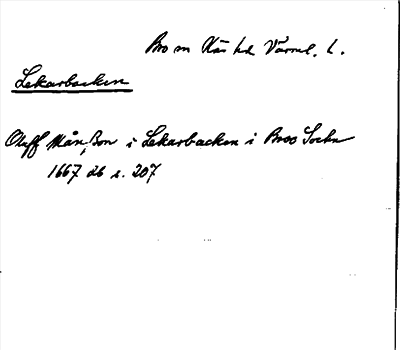 Bro sn Näs hd Värml. l.
Lekarbacken
Oluff Månsson i Lekarbacken i Broo Sochn
1667 db s. 207